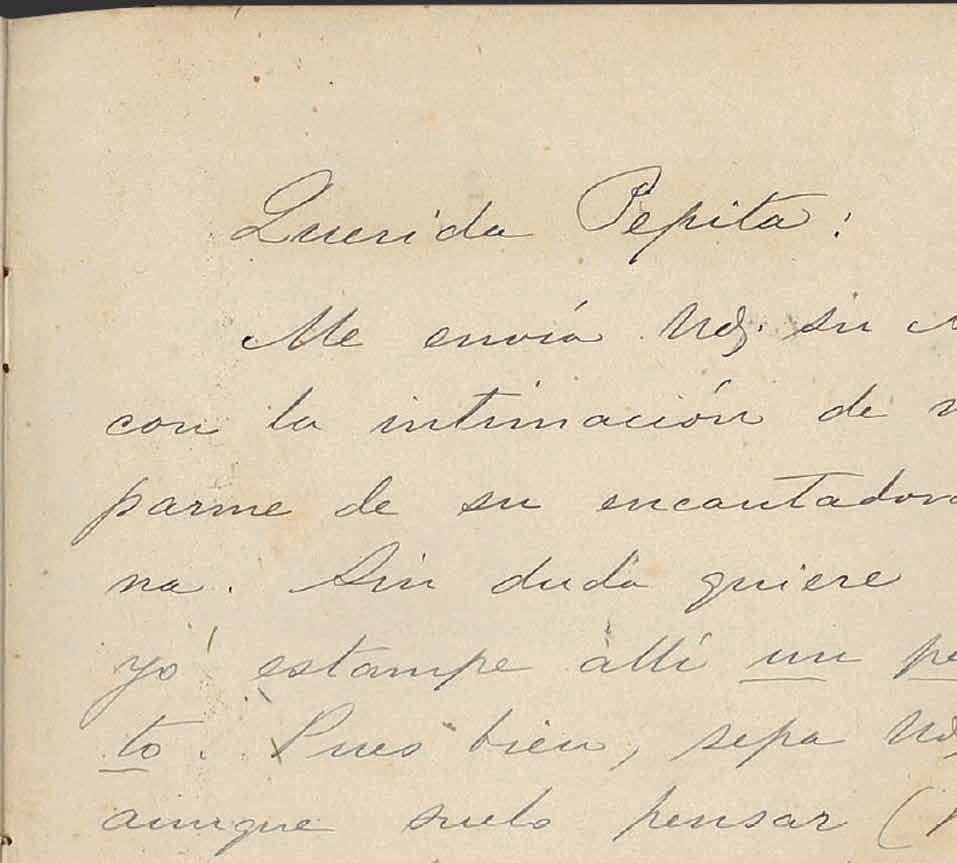 Querida Pepita:
Me envía Ud. su
con la intimación de
parme de su encantadora
na. Sin duda quiere
yó estampe allí un pe
to. Pues bien, sepa Ud,
aunque suelo pensar (